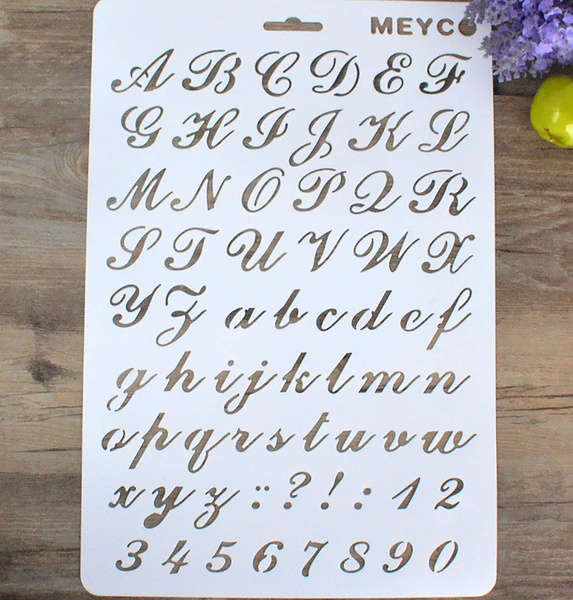 MEYCO
A B C D E F
G H I J K L
M N O P Q R
S T U V W X
Y Z a b c d e f
g h i j k l m n
o p q r s t u v w
x y z : ? ! : 1 2
3 4 5 6 7 8 9 0